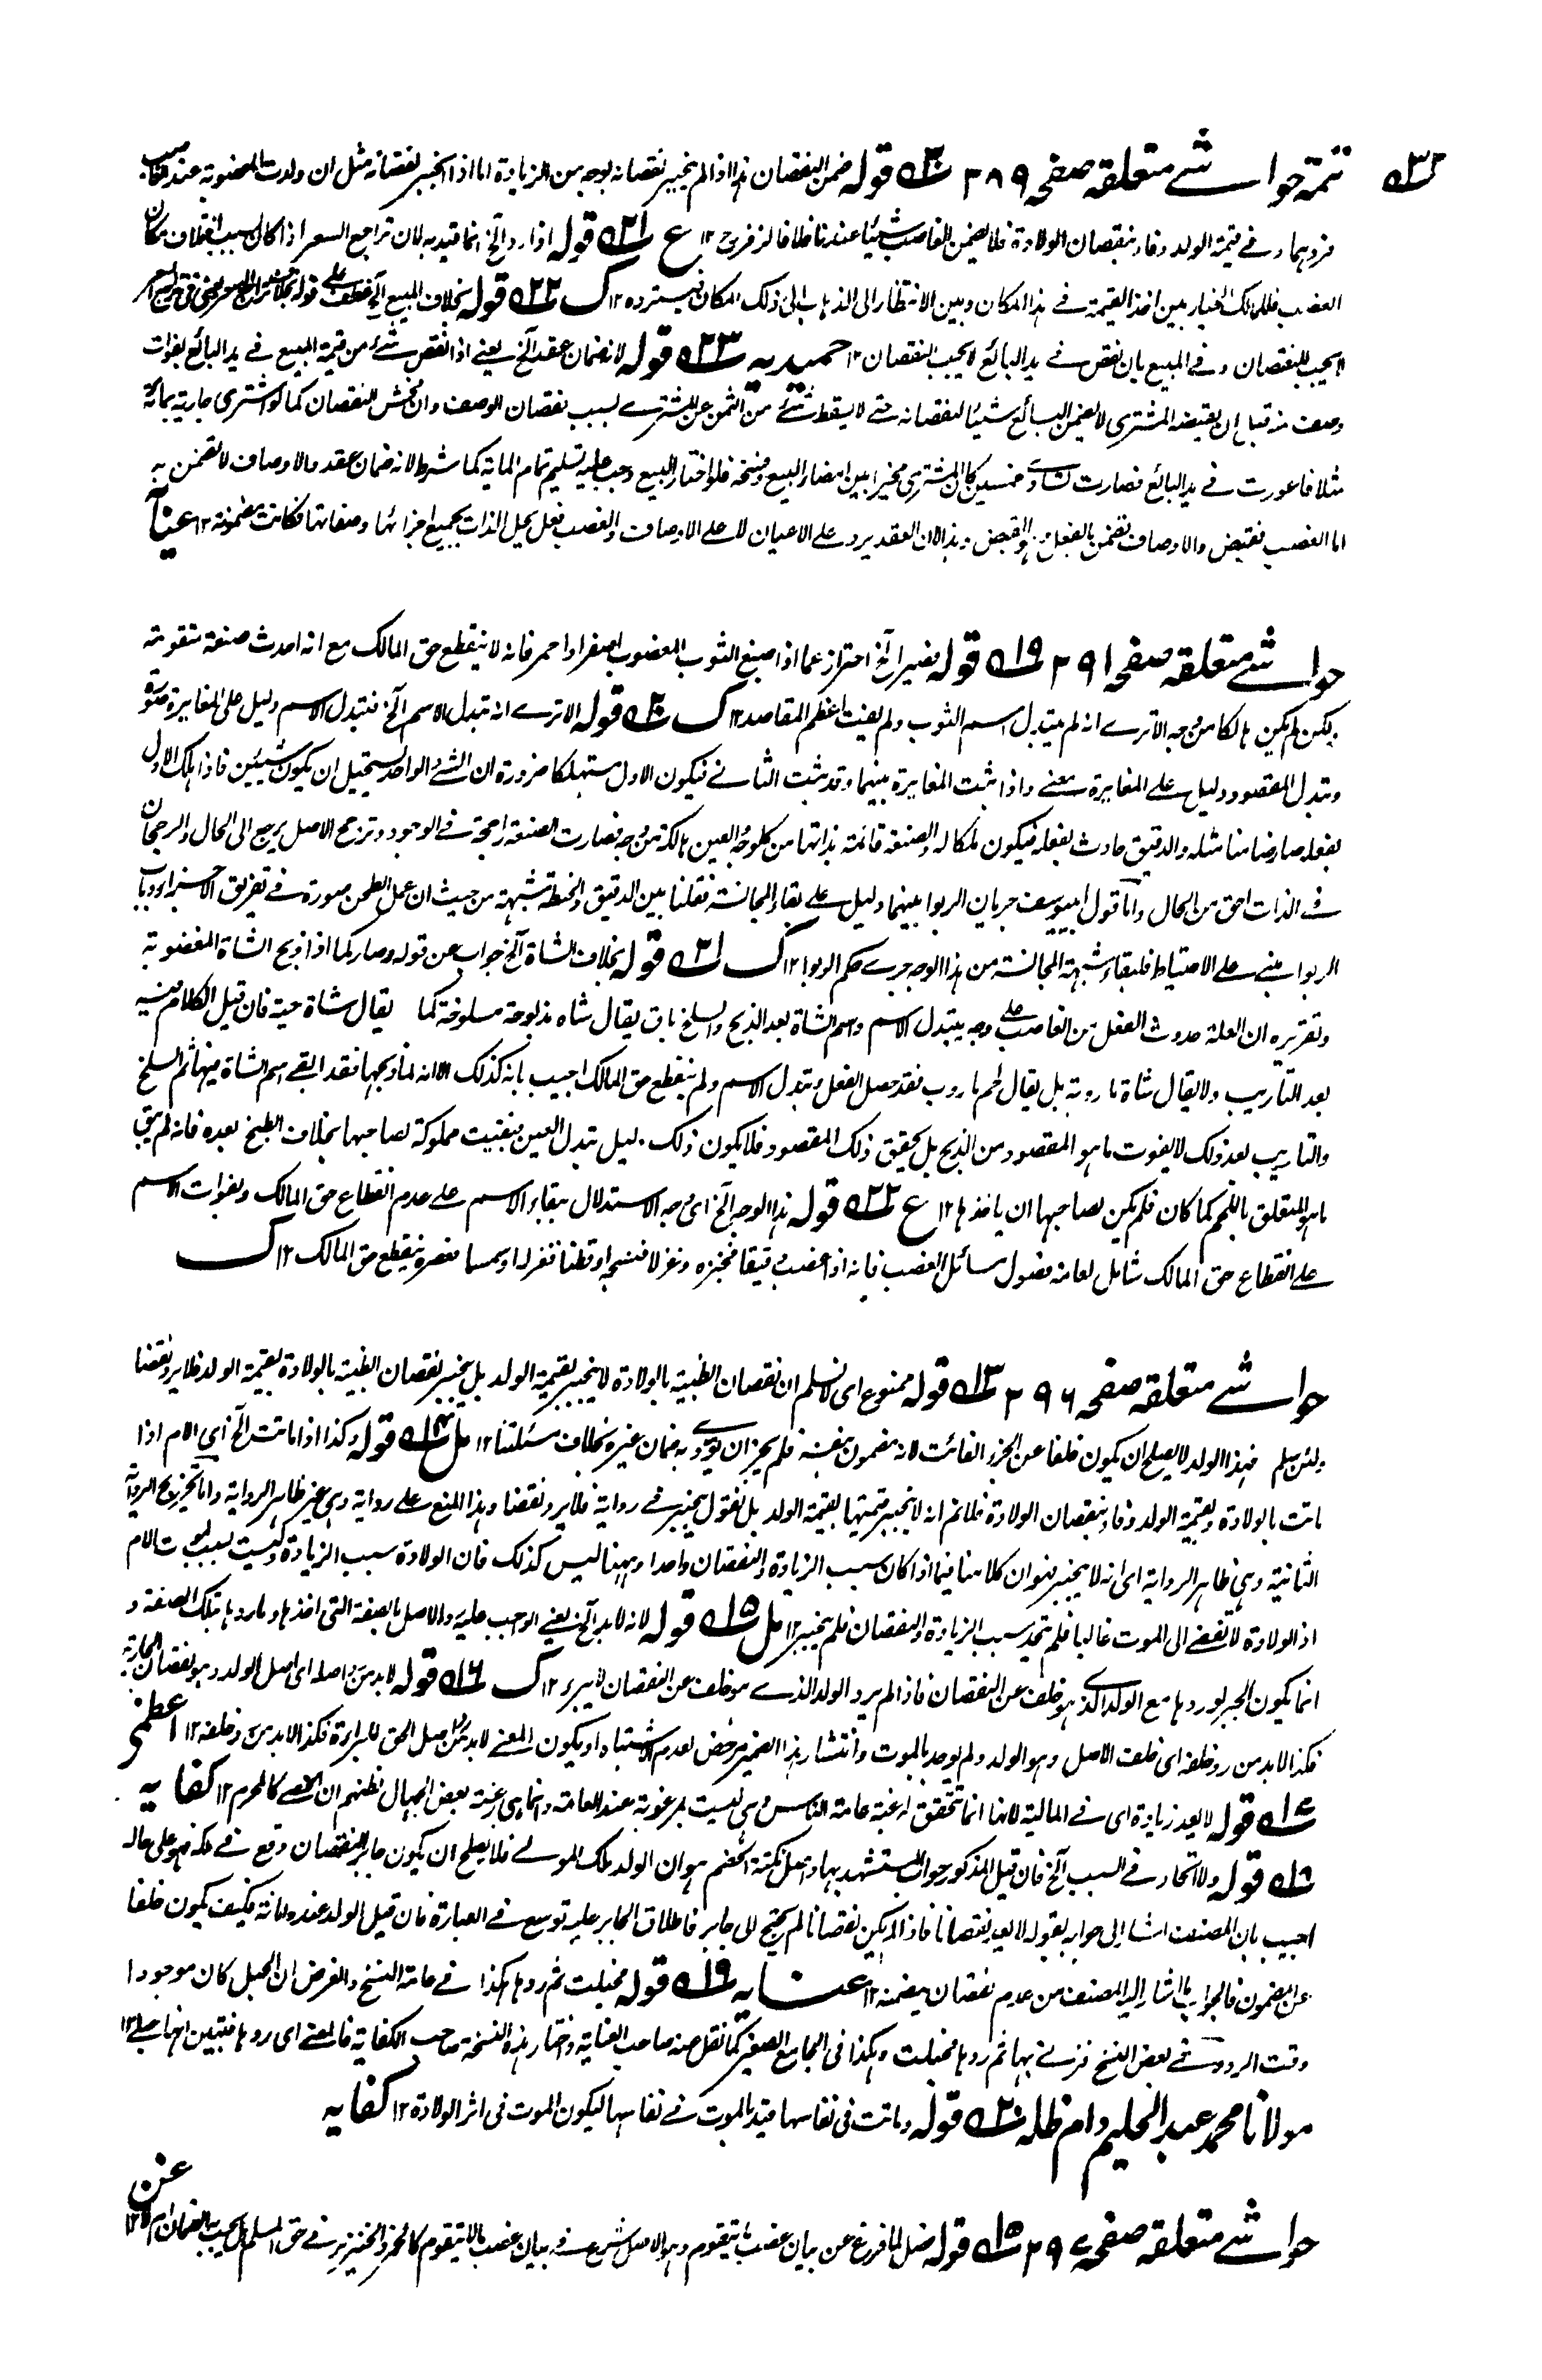 تتمة حواشے متعلقه صفحه ۳۸۹ ۲۰ قوله ضمن النقصان هذا اذا لم ينجبر نقصانه بوجه من الزيادة اما اذا انجبر نقصانه مثل ان ولدت المغصوبة عند الغاصب
فردهما وفے قيمة الولد وفاء بنقصان الولادة فلا يضمن الغاصب شيئا عندنا خلافا لزفر ۱۲ ع ۲۱ قوله اذا رد الخ انما قيد به لان تراجع السعر اذا كان بسبب اختلاف مكان
الغصب فللمالك الخيار بين اخذ القيمة فے هذا المكان وبين الانتظار الى الذهاب الى ذلك المكان فيسترده ۱۲ ک ۲۲ قوله بخلاف المبيع الخ عطف على قوله بخلاف تراجع السعر
لا يجب النقصان وفے المبيع بان نقص فے يد البائع لا يجب النقصان ۱۲ حميديه ۲۳ قوله لانه ضمان عقد الخ يعنے اذا نقص شئ من قيمة المبيع فے يد البائع بفوات
وصف منه قبل ان يقبضه المشترى لا يضمن البائع شيئا لنقصانه حتے لا يسقط شئ من الثمن عن المشترے بسبب نقصان الوصف وان فحش النقصان كما لو اشترى جارية بمائة
مثلا فاعورت فے يد البائع فصارت تساوے خمسين كان المشترى مخيرا بين امضاء البيع وفسخه فلو اختار البيع وجب عليه تسليم تمام المائة كما شرط لانه ضمان عقد والاوصاف لا تضمن به
اما الغصب فقبض والاوصاف تضمن بالفعل وهو القبض وهذا لان العقد يرد على الاعيان لا على الاوصاف والغصب فعل يحل الذات بجميع اجزائها وصفاتها فكانت مضمونة ۱۲ عناية
حواشے متعلقه صفحه ۳۹۱ ۱۹ قوله فغير الخ احتراز عما اذا صبغ الثوب المغصوب اصفر او احمر فانه لا ينقطع حق المالك مع انه احدث صنعة متقومة
لكن لم يكن هالكا من وجه الا ترے انه لم يتبدل اسم الثوب ولم يفت اعظم المقاصد ۱۲ ک ۲۰ قوله الا ترے انه تبدل الاسم الخ فتبدل الاسم دليل على المغايرة صورة
وتبدل المقصود دليل على المغايرة معنے واذا ثبت المغايرة بينهما وقد ثبت الثانے فيكون الاول مستهلكا ضرورة ان الشئ الواحد يستحيل ان يكون شيئين فاذا هلك الاول
بفعله صار ضامنا مثله والدقيق حادث بفعله فيكون ملكا له والصنعة قائمة بذاتها من كل وجه والعين هالكة من وجه فصارت الصنعة راجحة فے الوجود وترجح الاصل يرجع الى الحال والرجحان
فے الذات احق من الحال واما قول ابييوسف جريان الربوا بينهما دليل على بقاء المجانسة فقلنا بين الدقيق والحنطة شبهة من حيث ان عمل الطحن صورة فے تفريق الاجزاء وباب
الربوا مبنے على الاحتياط فلبقاء شبهة المجانسة من هذا الوجه جرے حكم الربوا ۱۲ ک ۲۱ قوله بخلاف الشاة الخ جواب عن قوله وصار كما اذا ذبح الشاة المغصوبة
وتقريره ان العلة حدوث الفعل من الغاصب على وجه يتبدل الاسم واسم الشاة بعد الذبح والسلخ باق يقال شاه مذبوحة مسلوخة كما يقال شاة حية فان قيل الكلام فيه
بعد التأريب ولا يقال شاة ماروبة بل يقال لحم ماروب فقد حصل الفعل وتبدل الاسم ولم ينقطع حق المالك اجيب بانه كذلك الا انه لما ذبحها فقد ابقى اسم الشاة فيها ثم السلخ
والتاريب بعد ذلك لا يفوت ما هو المقصود من الذبح بل يحقق ذلك المقصود فلا يكون ذلك دليل تبدل العين فبقيت مملوكة لصاحبها بخلاف الطبخ بعده فانه لم يبق
ما هو المتعلق باللحم كما كان فلم يكن لصاحبها ان ياخذها ۱۲ ع ۲۲ قوله هذا الوجه الخ اى وجه الاستدلال ببقاء الاسم على عدم انقطاع حق المالك وبفوات الاسم
على انقطاع حق المالك شامل لعامة فصول مسائل الغصب فانه اذا غصب دقيقا فخبزه وغزلا فنسجه او قطنا فغزله او سمسما فعصره ينقطع حق المالك ۱۲ ک
حواشے متعلقه صفحه ۳۹۶ ۱۳ قوله ممنوع اى لا نسلم ان نقصان الظبية بالولادة لا ينجبر بقيمة الولد بل ينجبر نقصان الظبية بالولادة بقيمة الولد فلا يرد نقضا
ولئن سلم فهذا الولد لا يصلح ان يكون خلفا عن الجزء الفائت لانه مضمون بنفسه فلم يجز ان يؤدے به ضمان غيره بخلاف مسئلتنا ۱۲ مل ۱۴ قوله وكذا اذا ماتت الخ اى الام اذا
ماتت بالولادة وبقيمة الولد وفاء بنقصان الولادة فلا نم انه لا ينجبر قيمتها بقيمة الولد بل نقول ينجبر فے رواية فلا يرد نقضا وهذا المنع على رواية وهى غير ظاهر الرواية واما تخريج الرواية
الثانية وهى ظاهر الرواية اى انه لا ينجبر فهو ان كلامنا فيما اذا كان سبب الزيادة والنقصان واحدا وههنا ليس كذلك فان الولادة سبب الزيادة وليست بسبب لموت الام
اذ الولادة لا تفضے الى الموت غالبا فلم يتحد سبب الزيادة والنقصان فلم ينجبر ۱۲ مل ۱۵ قوله لانه لا بد الخ يعنے الواجب عليه رد الاصل بالصفة التى اخذها وما ردها بتلك الصفة و
انما يكون الجبر لو ردها مع الولد الذے هو خلف عن النقصان فاذا لم يرد الولد الذے هو خلف عن النقصان لا يبرء ۱۲ ک ۱۶ قوله لا بد من رد اصله اى اصل الولد وهو نقصان الجارية
فكذا لا بد من رد خلفه اى خلف الاصل وهو الولد ولم يوجد بالموت وانتشار هذا الضمير مرخص لعدم الاشتباه او يكون المعنے لا بد من رد اصل الحق للبراءة فكذا لا بد من رد خلفه ۱۲ اعظمى
۱۷ قوله لا يعد زيادة اى فے المالية لانها انما تتحقق لرغبة عامة الناس وهى ليست بمرغوبة عند العامة وانما هى رغبة بعض الجهال لظنهم ان الخصے كالمحرم ۱۲ كفايه
۱۸ قوله ولا اتحاد فے السبب الخ فان قيل المذكور جواب المستشهد بها واصل نكتة الخصم هو ان الولد ملك المولے فلا يصلح ان يكون جابرا لنقصان وقع فے ملكه فهو على حاله
اجيب بان المصنف اشار الى جوابه بقوله لا يعد نقصانا فاذا لم يكن نقصانا لم يحتج الى جابر فاطلاق الجابر عليه توسع فے العبارة فان قيل الولد عنده امانة فكيف يكون خلفا
عن المضمون فالجواب ما اشار اليه المصنف من عدم نقصان يضمنه ۱۲ عنايه ۱۹ قوله فحبلت ثم ردها هكذا فے عامة النسخ والغرض ان الحبل كان موجودا
وقت الرد وفے بعض النسخ فزنے بها ثم ردها فحبلت وهكذا فى الجامع الصغير كما نقل عنه صاحب العناية واختار هذه النسخة صاحب الكفاية فالمعنے اى ردها فتبين انها حبلے ۱۲
مولانا محمد عبد الحليم دام ظله ۲۰ قوله وماتت فى نفاسها قيد بالموت فے نفاسها ليكون الموت فى اثر الولادة ۱۲ كفايه
حواشے متعلقه صفحه ۳۹۷ ۱۵ قوله فصل لما فرغ عن بيان غصب ما يتقوم وهو الاصل شرع فے بيان غصب ما لا يتقوم كالخمر والخنزير فے حق المسلم هل يجب به الضمان ام لا ۱۲
عن